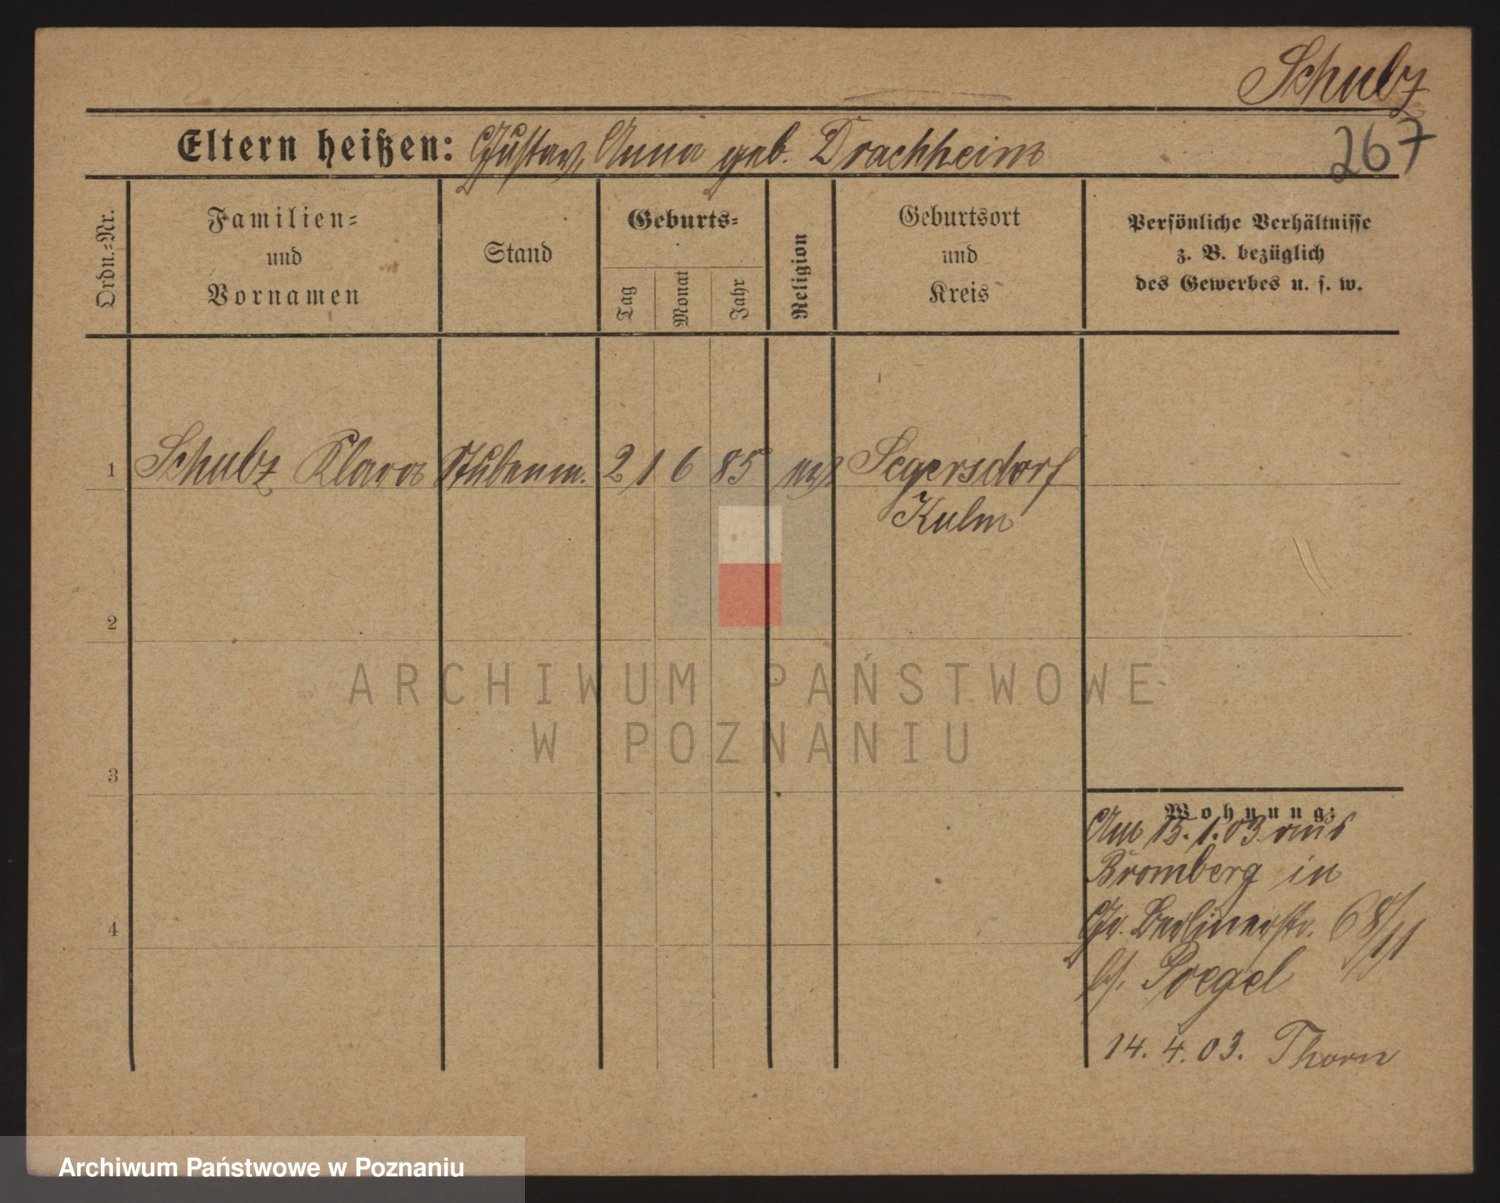 Schulz
Eltern heißen: Gustav, Anna geb. Drachheim
267
Ordn.-Nr.
Familien-
und
Vornamen
Stand
Geburts-
Tag
Monat
Jahr
Religion
Geburtsort
und
Kreis
Persönliche Verhältnisse
z. B. bezüglich
des Gewerbes u. s. w.
1 Schulz Klara Stubenm. 21 6 85 Segersdorf
Kulm
2
3
4
Wohnung:
Am 15.1.03 aus
Bromberg in
Gr. Berlinerstr. 68/11
bei
14.4.03. Thorn
ARCHIWUM PAŃSTWOWE
W POZNANIU
Archiwum Państwowe w Poznaniu